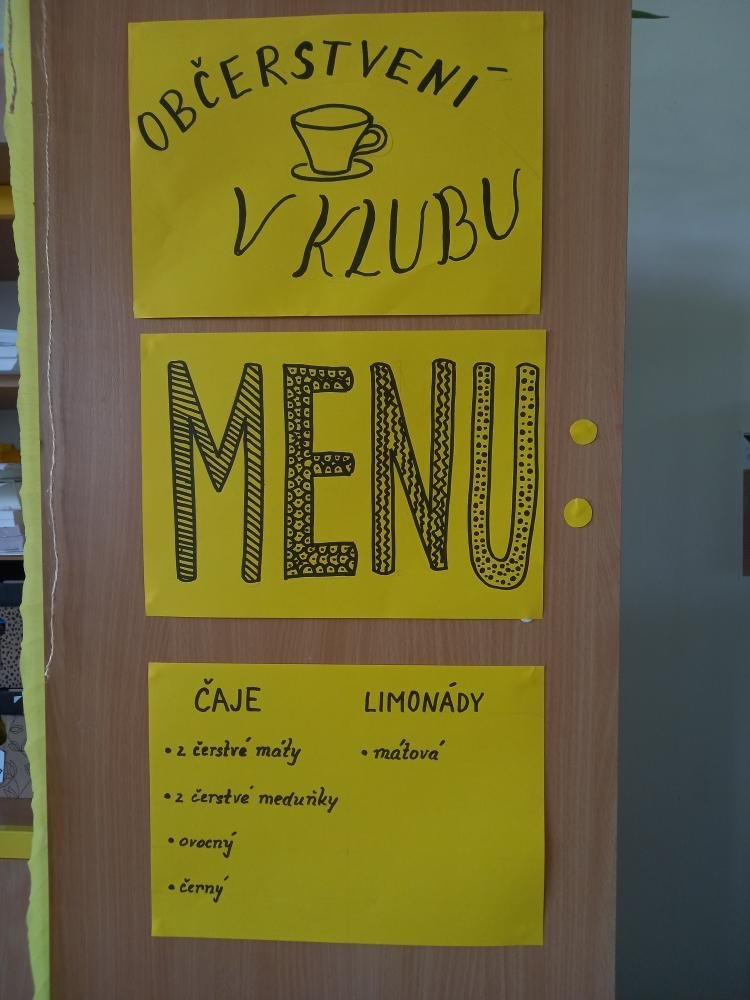 OBČERSTVENÍ
V KLUBU
MENU
ČAJE
• z čerstvé máty
• z čerstvé meduňky
• ovocný
• černý
LIMONÁDY
• mátová